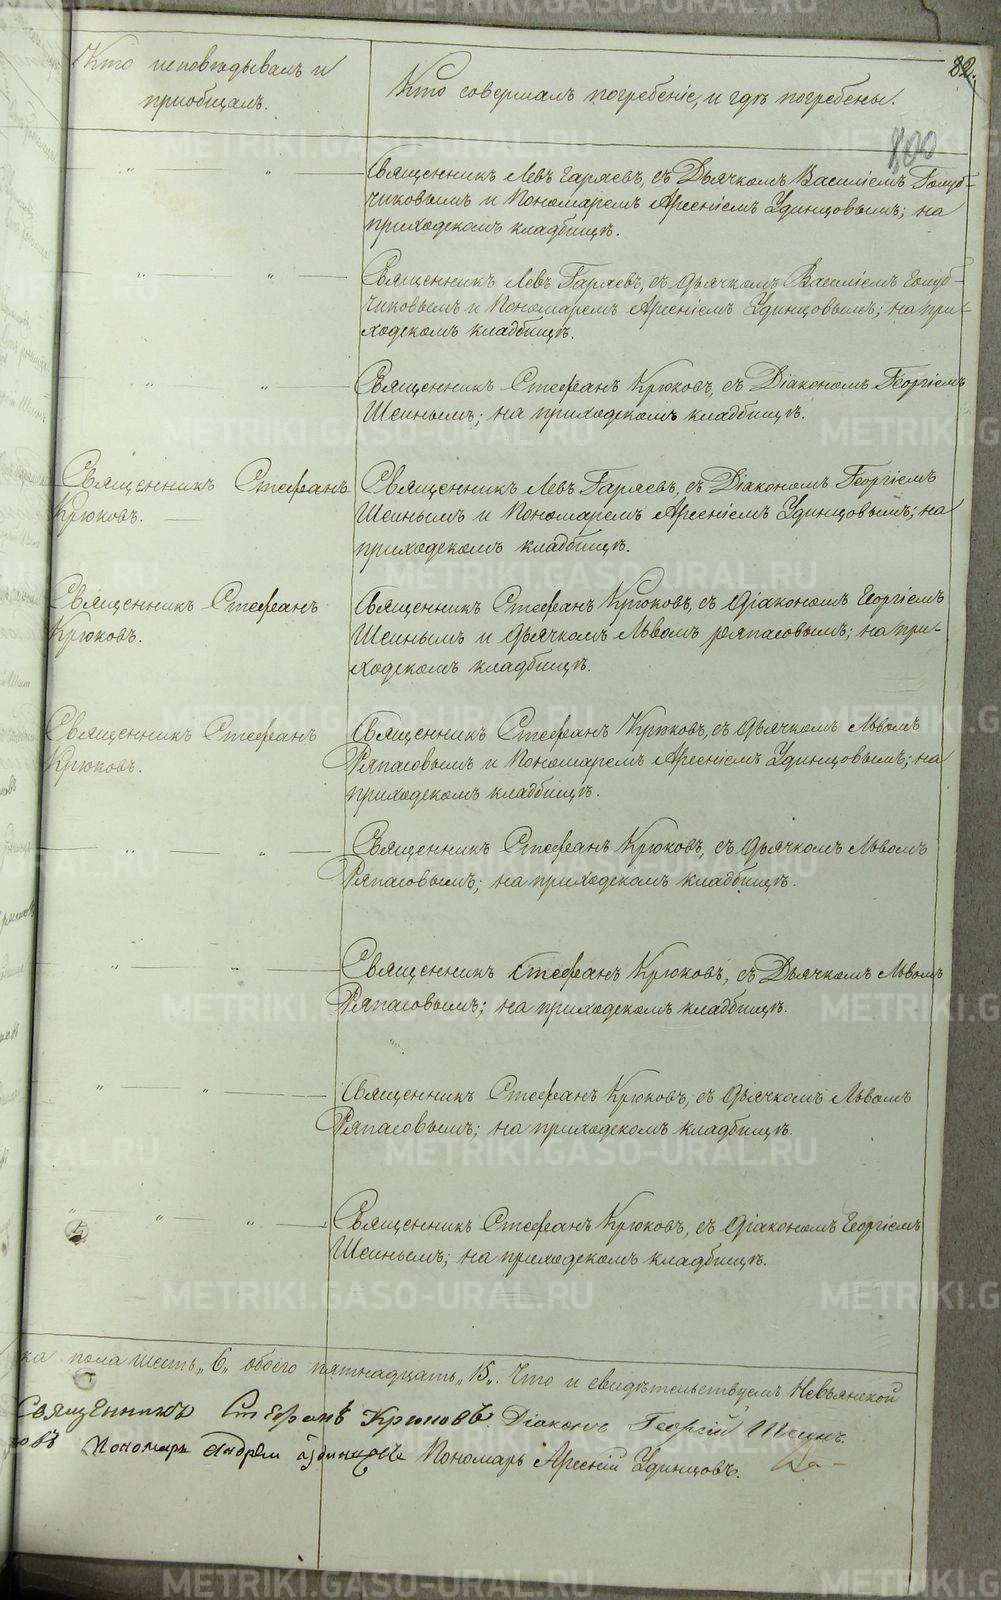 82.
800
Кто исповѣдывалъ и
приобщалъ.
Кто совершалъ погребеніе, и гдѣ погребены.
„ „ Священникъ Левъ Гаряевъ, съ Дьячкомъ Василіемъ Голуб-
чиковымъ и Пономаремъ Арсеніемъ Удинцовымъ; на
приходскомъ кладбищѣ.
„ „ Священникъ Левъ Гаряевъ, съ дьячкомъ Василіемъ Голуб-
чиковымъ и Пономаремъ Арсеніемъ Удинцовымъ; на при-
ходскомъ кладбищѣ.
„ „ Священникъ Стефанъ Крюковъ, съ Діакономъ Георгіемъ
Шеинымъ; на приходскомъ кладбищѣ.
Священникъ Стефанъ
Крюковъ.
Священникъ Левъ Гаряевъ, съ Діакономъ Георгіемъ
Шеинымъ и Пономаремъ Арсеніемъ Удинцовымъ; на
приходскомъ кладбищѣ.
Священникъ Стефанъ
Крюковъ.
Священникъ Стефанъ Крюковъ, съ діакономъ Георгіемъ
Шеинымъ и дьячкомъ Львомъ Ряпасовымъ; на при-
ходскомъ кладбищѣ.
Священникъ Стефанъ
Крюковъ.
Священникъ Стефанъ Крюковъ, съ дьячкомъ Львомъ
Ряпасовымъ и Пономаремъ Арсеніемъ Удинцовымъ; на
приходскомъ кладбищѣ.
„ „ Священникъ Стефанъ Крюковъ, съ дьячкомъ Львомъ
Ряпасовымъ; на приходскомъ кладбищѣ.
„ „ Священникъ Стефанъ Крюковъ, съ Дьячкомъ Львомъ
Ряпасовымъ; на приходскомъ кладбищѣ.
„ „ Священникъ Стефанъ Крюковъ, съ дьячкомъ Львомъ
Ряпасовымъ; на приходскомъ кладбищѣ.
„ „ „ Священникъ Стефанъ Крюковъ, съ діакономъ Георгіемъ
Шеинымъ; на приходскомъ кладбищѣ.
ка пола шесть „6„ обоего пятнадцать „15„. Что и свидѣтельствуемъ Невьянской
Священникъ Стефанъ Крюковъ. Діаконъ Георгій Шеинъ.
овъ Пономарь Андрей Удинцовъ Пономарь Арсеній Удинцовъ. Ва-
METRIKI.GASO-URAL.RU